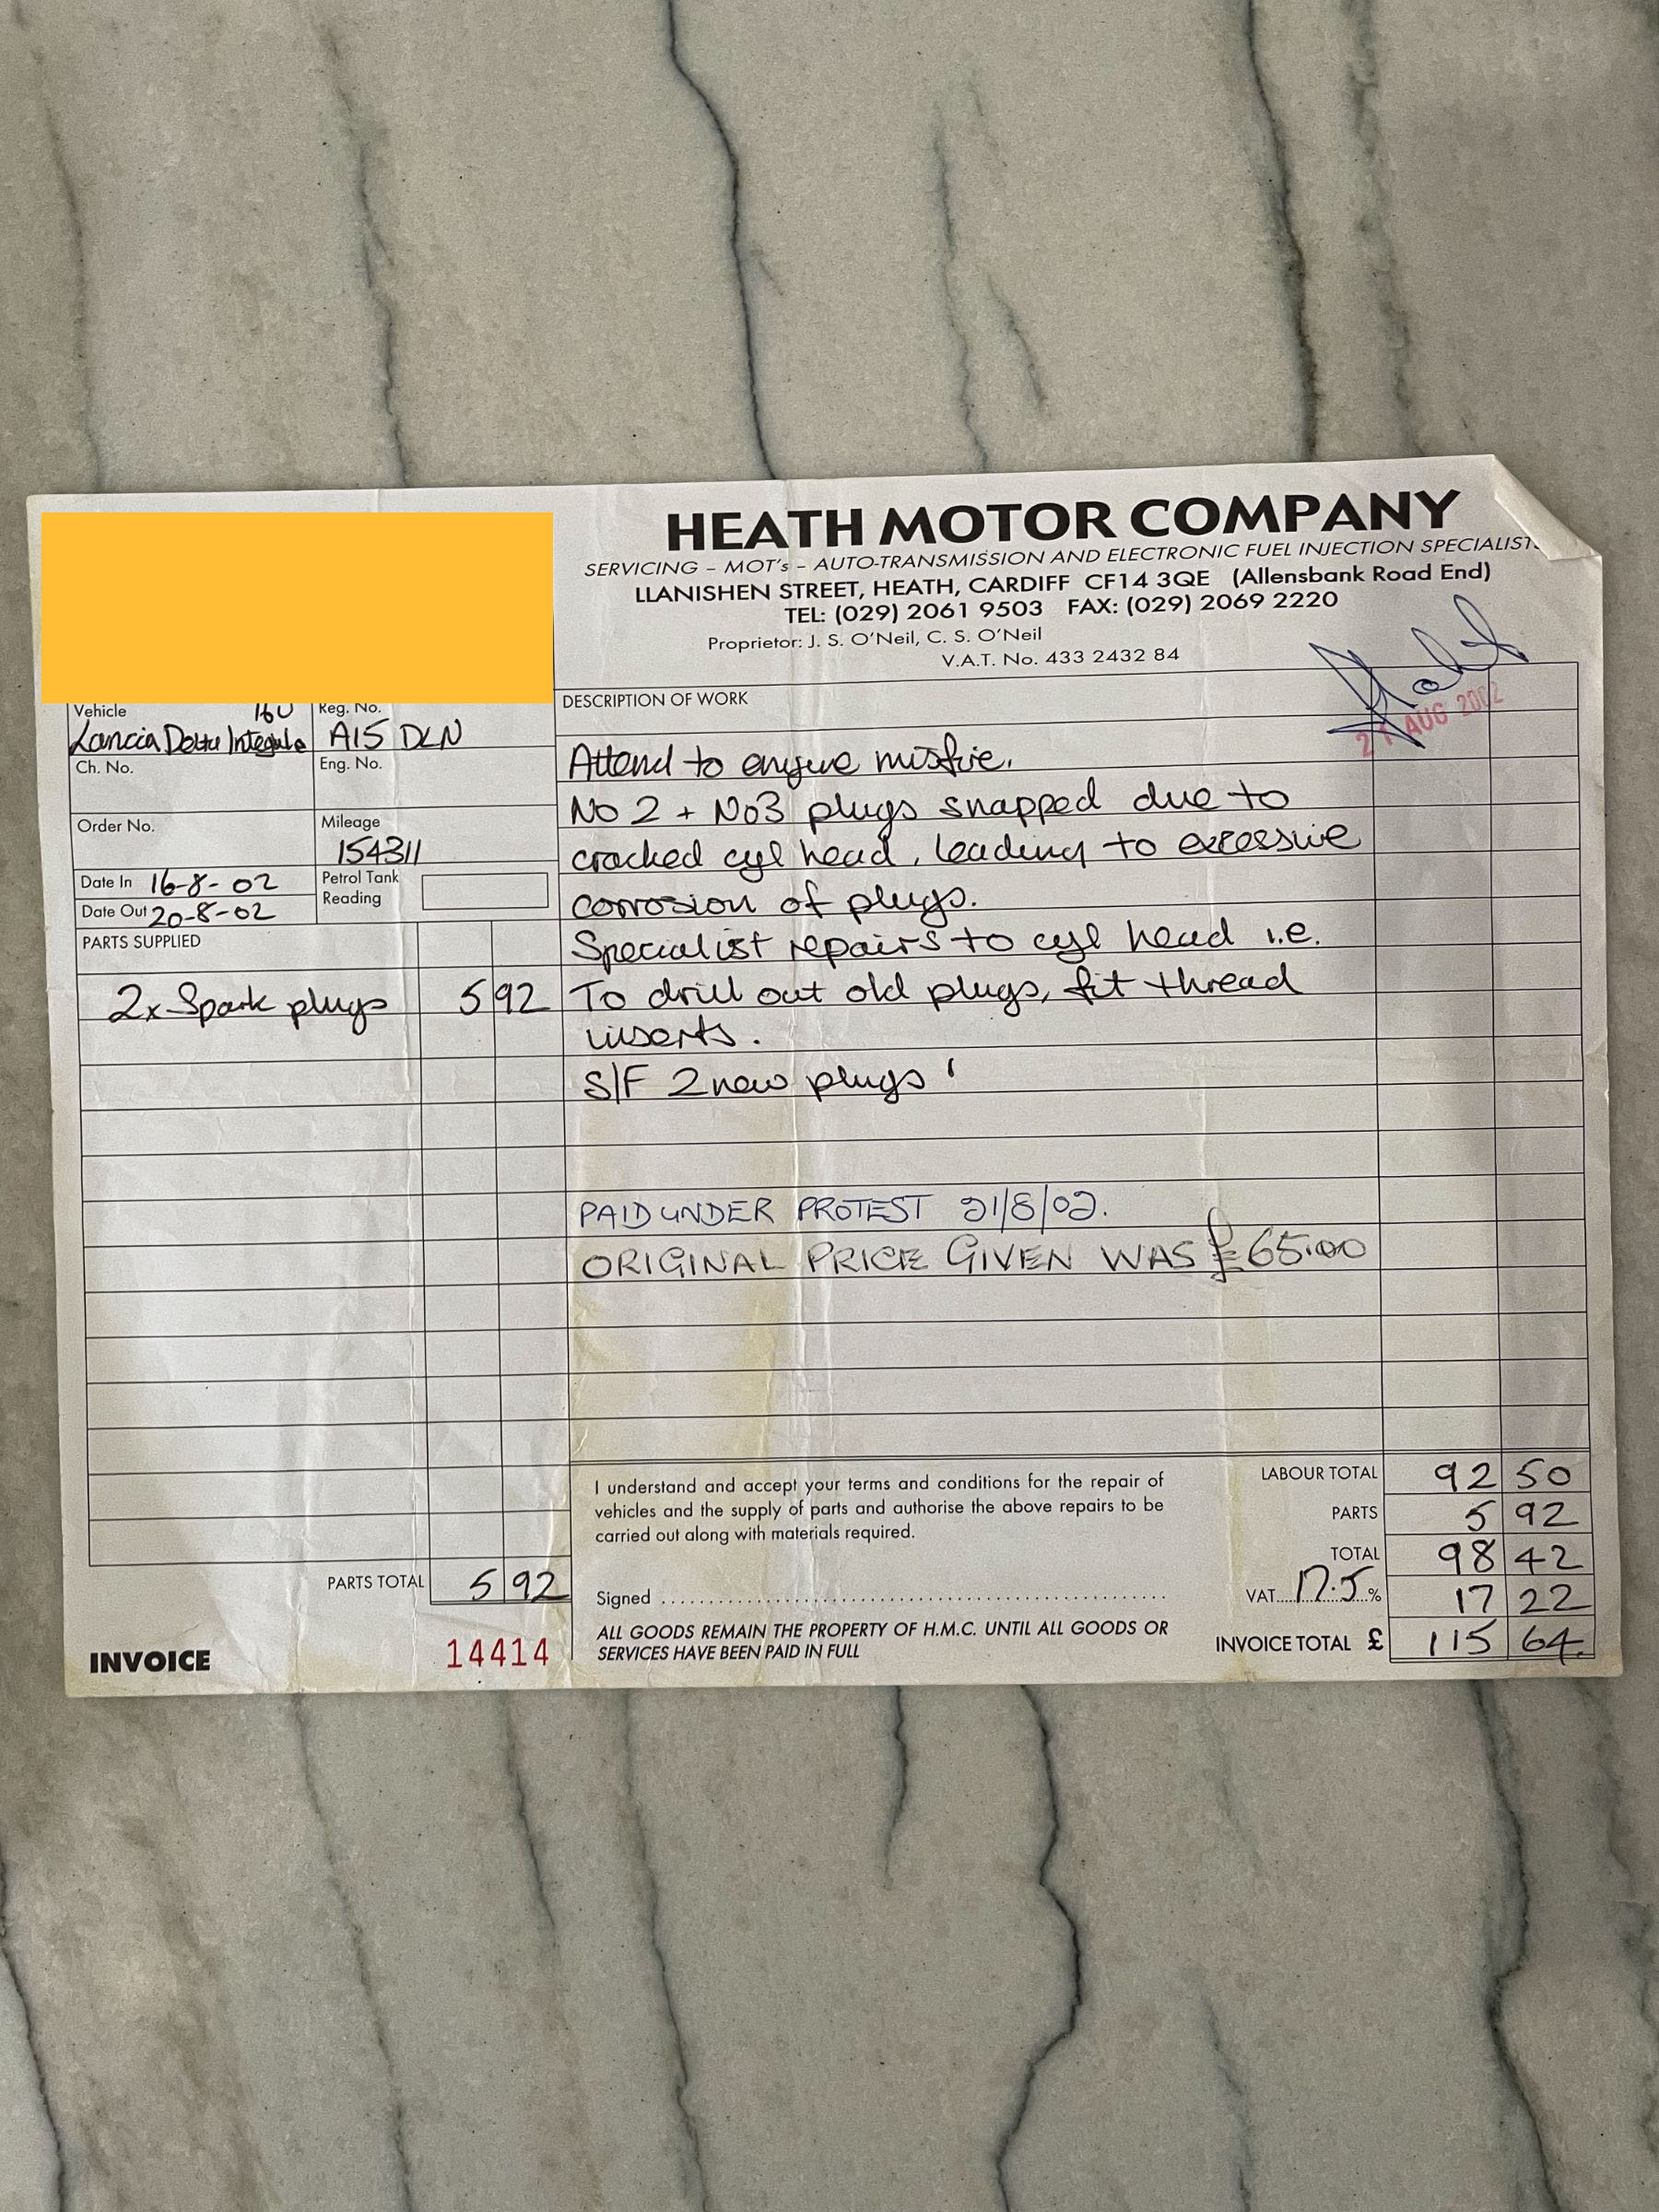 HEATH MOTOR COMPANY
SERVICING – MOT's – AUTO-TRANSMISSION AND ELECTRONIC FUEL INJECTION SPECIALIST
LLANISHEN STREET, HEATH, CARDIFF CF14 3QE (Allensbank Road End)
TEL: (029) 2061 9503 FAX: (029) 2069 2220
Proprietor: J. S. O'Neil, C. S. O'Neil
V.A.T. No. 433 2432 84
21 AUG 2002
Vehicle
Lancia Delta Integrale
Reg. No.
A15 DLN
Ch. No.
Eng. No.
Order No.
Mileage
154311
Date In 16-8-02
Date Out 20-8-02
Petrol Tank
Reading
PARTS SUPPLIED
2x Spark plugs 5 92
PARTS TOTAL 5 92
INVOICE 14414
DESCRIPTION OF WORK
Attend to engine misfire.
No 2 + No3 plugs snapped due to
cracked cyl head, leading to excessive
corrosion of plugs.
Specialist repairs to cyl head i.e.
To drill out old plugs, fit thread
inserts.
S/F 2 new plugs
PAID UNDER PROTEST 21/8/02.
ORIGINAL PRICE GIVEN WAS £65.00
I understand and accept your terms and conditions for the repair of
vehicles and the supply of parts and authorise the above repairs to be
carried out along with materials required.
Signed
ALL GOODS REMAIN THE PROPERTY OF H.M.C. UNTIL ALL GOODS OR
SERVICES HAVE BEEN PAID IN FULL
LABOUR TOTAL 92 50
PARTS 5 92
TOTAL 98 42
VAT 17.5 % 17 22
INVOICE TOTAL £ 115 64